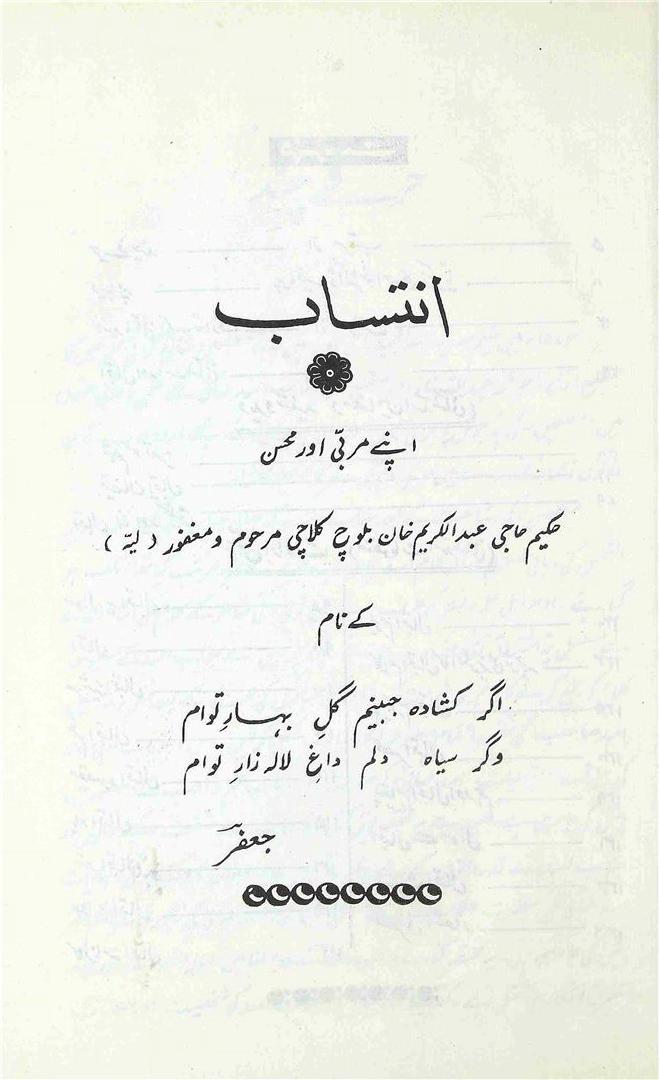 انتساب
اپنے مربیّ اور محسن
حکیم حاجی عبدالکریم خان بلوچ کلاچی مرحوم و مغفور (لیّہ)
کے نام
اگر کشادہ جبینم گلِ بہارِ توام
وگر سیاہ دلم داغِ لالہ زارِ توام
جعفر